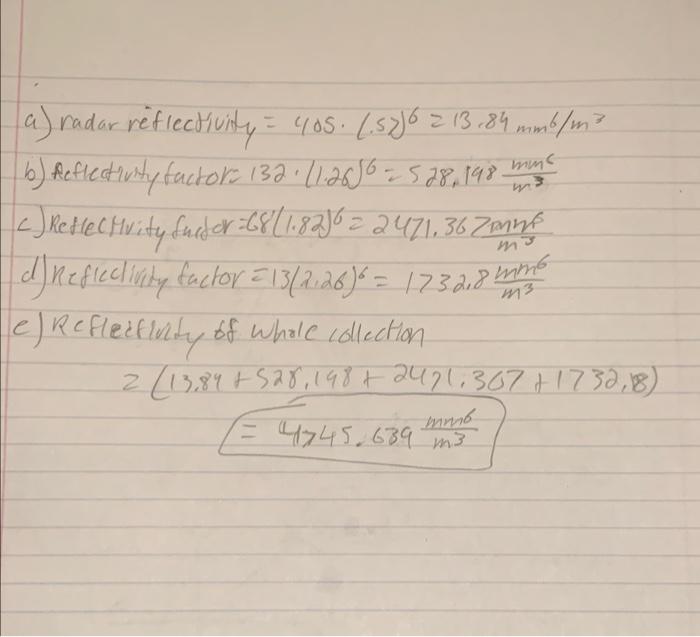 a) radar reflectivity = 405 · (.52)^6 = 13.84 mm^6/m^3
b) Reflectivity factor = 132 · (1.26)^6 = 528.198 mm^6/m^3
c) Reflectivity factor = 68(1.82)^6 = 2471.367 mm^6/m^3
d) Reflectivity factor = 13(2.26)^6 = 1732.8 mm^6/m^3
e) Reflectivity of whole collection
= (13.84 + 528.198 + 2471.367 + 1732.8)
= 4745.639 mm^6/m^3